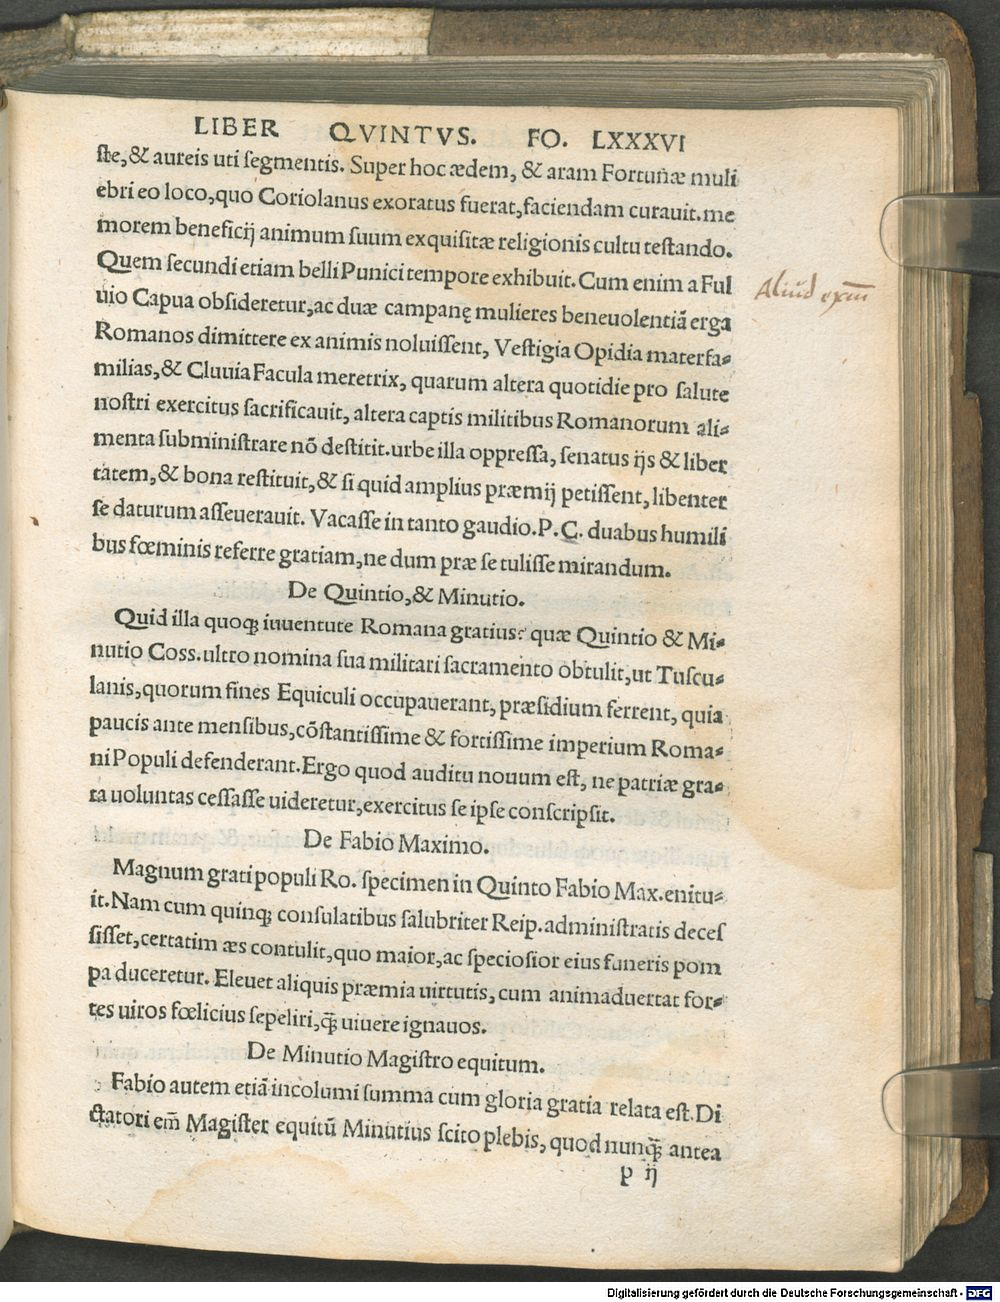 LIBER QVINTVS. FO. LXXXVI
ſte, & aureis uti ſegmentis. Super hoc ædem, & aram Fortunæ muli
ebri eo loco, quo Coriolanus exoratus fuerat, faciendam curauit. me
morem beneficij animum ſuum exquiſitæ religionis cultu teſtando.
Quem ſecundi etiam belli Punici tempore exhibuit. Cum enim a Ful
uio Capua obſideretur, ac duæ campanę mulieres beneuolentiā erga
Aliud exm
Romanos dimittere ex animis noluiſſent, Veſtigia Opidia materfa⸗
milias, & Cluuia Facula meretrix, quarum altera quotidie pro ſalute
noſtri exercitus ſacrificauit, altera captis militibus Romanorum ali⸗
menta ſubminiſtrare nō deſtitit. urbe illa oppreſſa, ſenatus ijs & liber
tatem, & bona reſtituit, & ſi quid amplius præmij petiſſent, libenter
ſe daturum aſſeuerauit. Vacaſſe in tanto gaudio. P. C. duabus humili
bus fœminis referre gratiam, ne dum præ ſe tuliſſe mirandum.
De Quintio, & Minutio.
Quid illa quoqꝫ iuuentute Romana gratius? quæ Quintio & Mi⸗
nutio Coss. ultro nomina ſua militari ſacramento obtulit, ut Tuſcu⸗
lanis, quorum fines Equiculi occupauerant, præſidium ferrent, quia
paucis ante menſibus, cōſtantiſſime & fortiſſime imperium Roma⸗
ni Populi defenderant. Ergo quod auditu nouum eſt, ne patriæ gra⸗
ta uoluntas ceſſaſſe uideretur, exercitus ſe ipſe conſcripſit.
De Fabio Maximo.
Magnum grati populi Ro. ſpecimen in Quinto Fabio Max. enitu⸗
it. Nam cum quinqꝫ conſulatibus ſalubriter Reip. adminiſtratis deceſ
ſiſſet, certatim æs contulit, quo maior, ac ſpecioſior eius funeris pom
pa duceretur. Eleuet aliquis præmia uirtutis, cum animaduertat for⸗
tes uiros fœlicius ſepeliri, q̄ꝫ uiuere ignauos.
De Minutio Magiſtro equitum.
Fabio autem etiā incolumi ſumma cum gloria gratia relata eſt. Di
ctatori em̄ Magiſter equitū Minutius ſcito plebis, quod nunq̄ꝫ antea
p ij
Digitalisierung gefördert durch die Deutsche Forschungsgemeinschaft - DFG